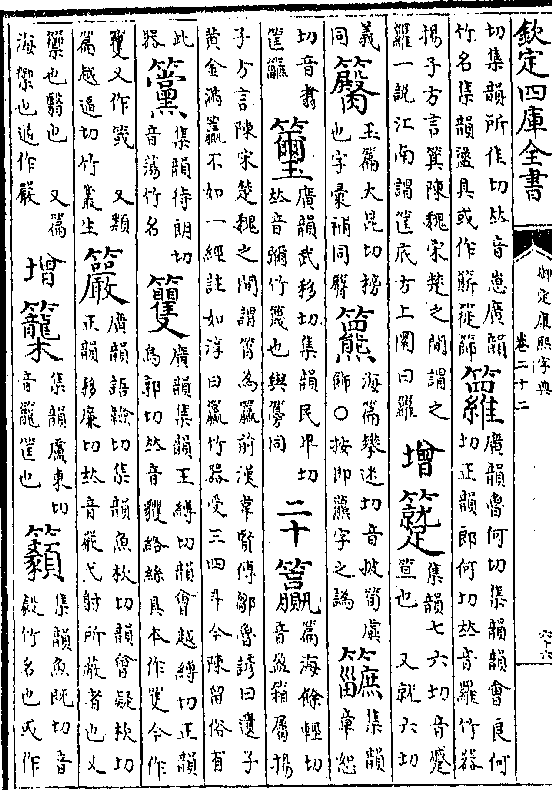 欽定四庫全書
御定康熙字典
卷二十二
六十六
切集韻所作切𠀤音葸廣韻
竹名集韻盪具或作簁簁篩
籮
廣韻魯何切集韻韻會良何
切正韻郎何切𠀤音羅竹器
揚子方言箕陳魏宋楚之間謂之
籮一說江南謂筐底方上圜曰籮
增
集韻七六切音蹙
笪也 又就六切
義
同
玉篇大昆切榜
也字彙補同臀
海篇攀迷切音披筍虡
飾○按即羆字之譌
集韻
章恕
切音翥
筐
廣韻武移切集韻民卑切
𠀤音彌竹篾也與同
二十
籯
篇海餘輕切
音盈箱屬揚
子方言陳宋楚魏之間謂筲為籯前漢韋賢傳鄒魯諺曰遺子
黃金滿籯不如一經註如淳曰籯竹器受三四斗今陳留俗有
此
器
集韻待朗切
音蕩竹名
籰
廣韻集韻王縛切韻會越縛切正韻
烏郭切𠀤音矱絡絲具本作篗今作
籰又作 又類
篇越逼切竹叢生
廣韻語切集韻魚枕切韻會疑枕切
正韻移廉切𠀤音嚴弋射所蔽者也又
籞也翳也 又篇
海籞也通作嚴
增
集韻盧東切
音籠筐也
集韻魚既切音
毅竹名也或作